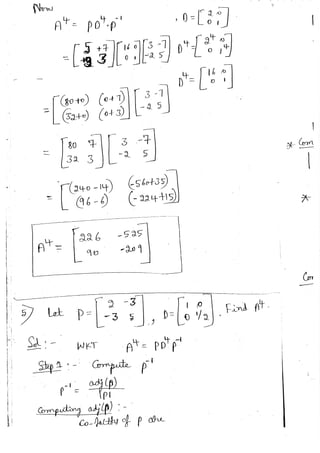 Now
A⁴ = P D⁴ . P⁻¹ , D = [2 0; 0 1]
= [5 +7; 3] [16 0; 0 1] [3 -7; -2 5] D⁴ = [2⁴ 0; 0 1⁴]
D⁴ = [16 0; 0 1]
= [(80+0) (0+7); (32+0) (0+3)] [3 -7; -2 5]
= [80 7; 32 3] [3 -7; -2 5]
= [(240-14) (-560+35); (96-6) (-224+15)]
A⁴ = [226 -525; 90 -209]
5) Let P = [2 -3; -3 5], D = [1 0; 0 1/2]. Find A⁴.
Sol :- WKT A⁴ = P D⁴ P⁻¹
Step 1 :- Compute P⁻¹
P⁻¹ = adj(P) / |P|
Computing adj(P) :-
Co-factors of P are